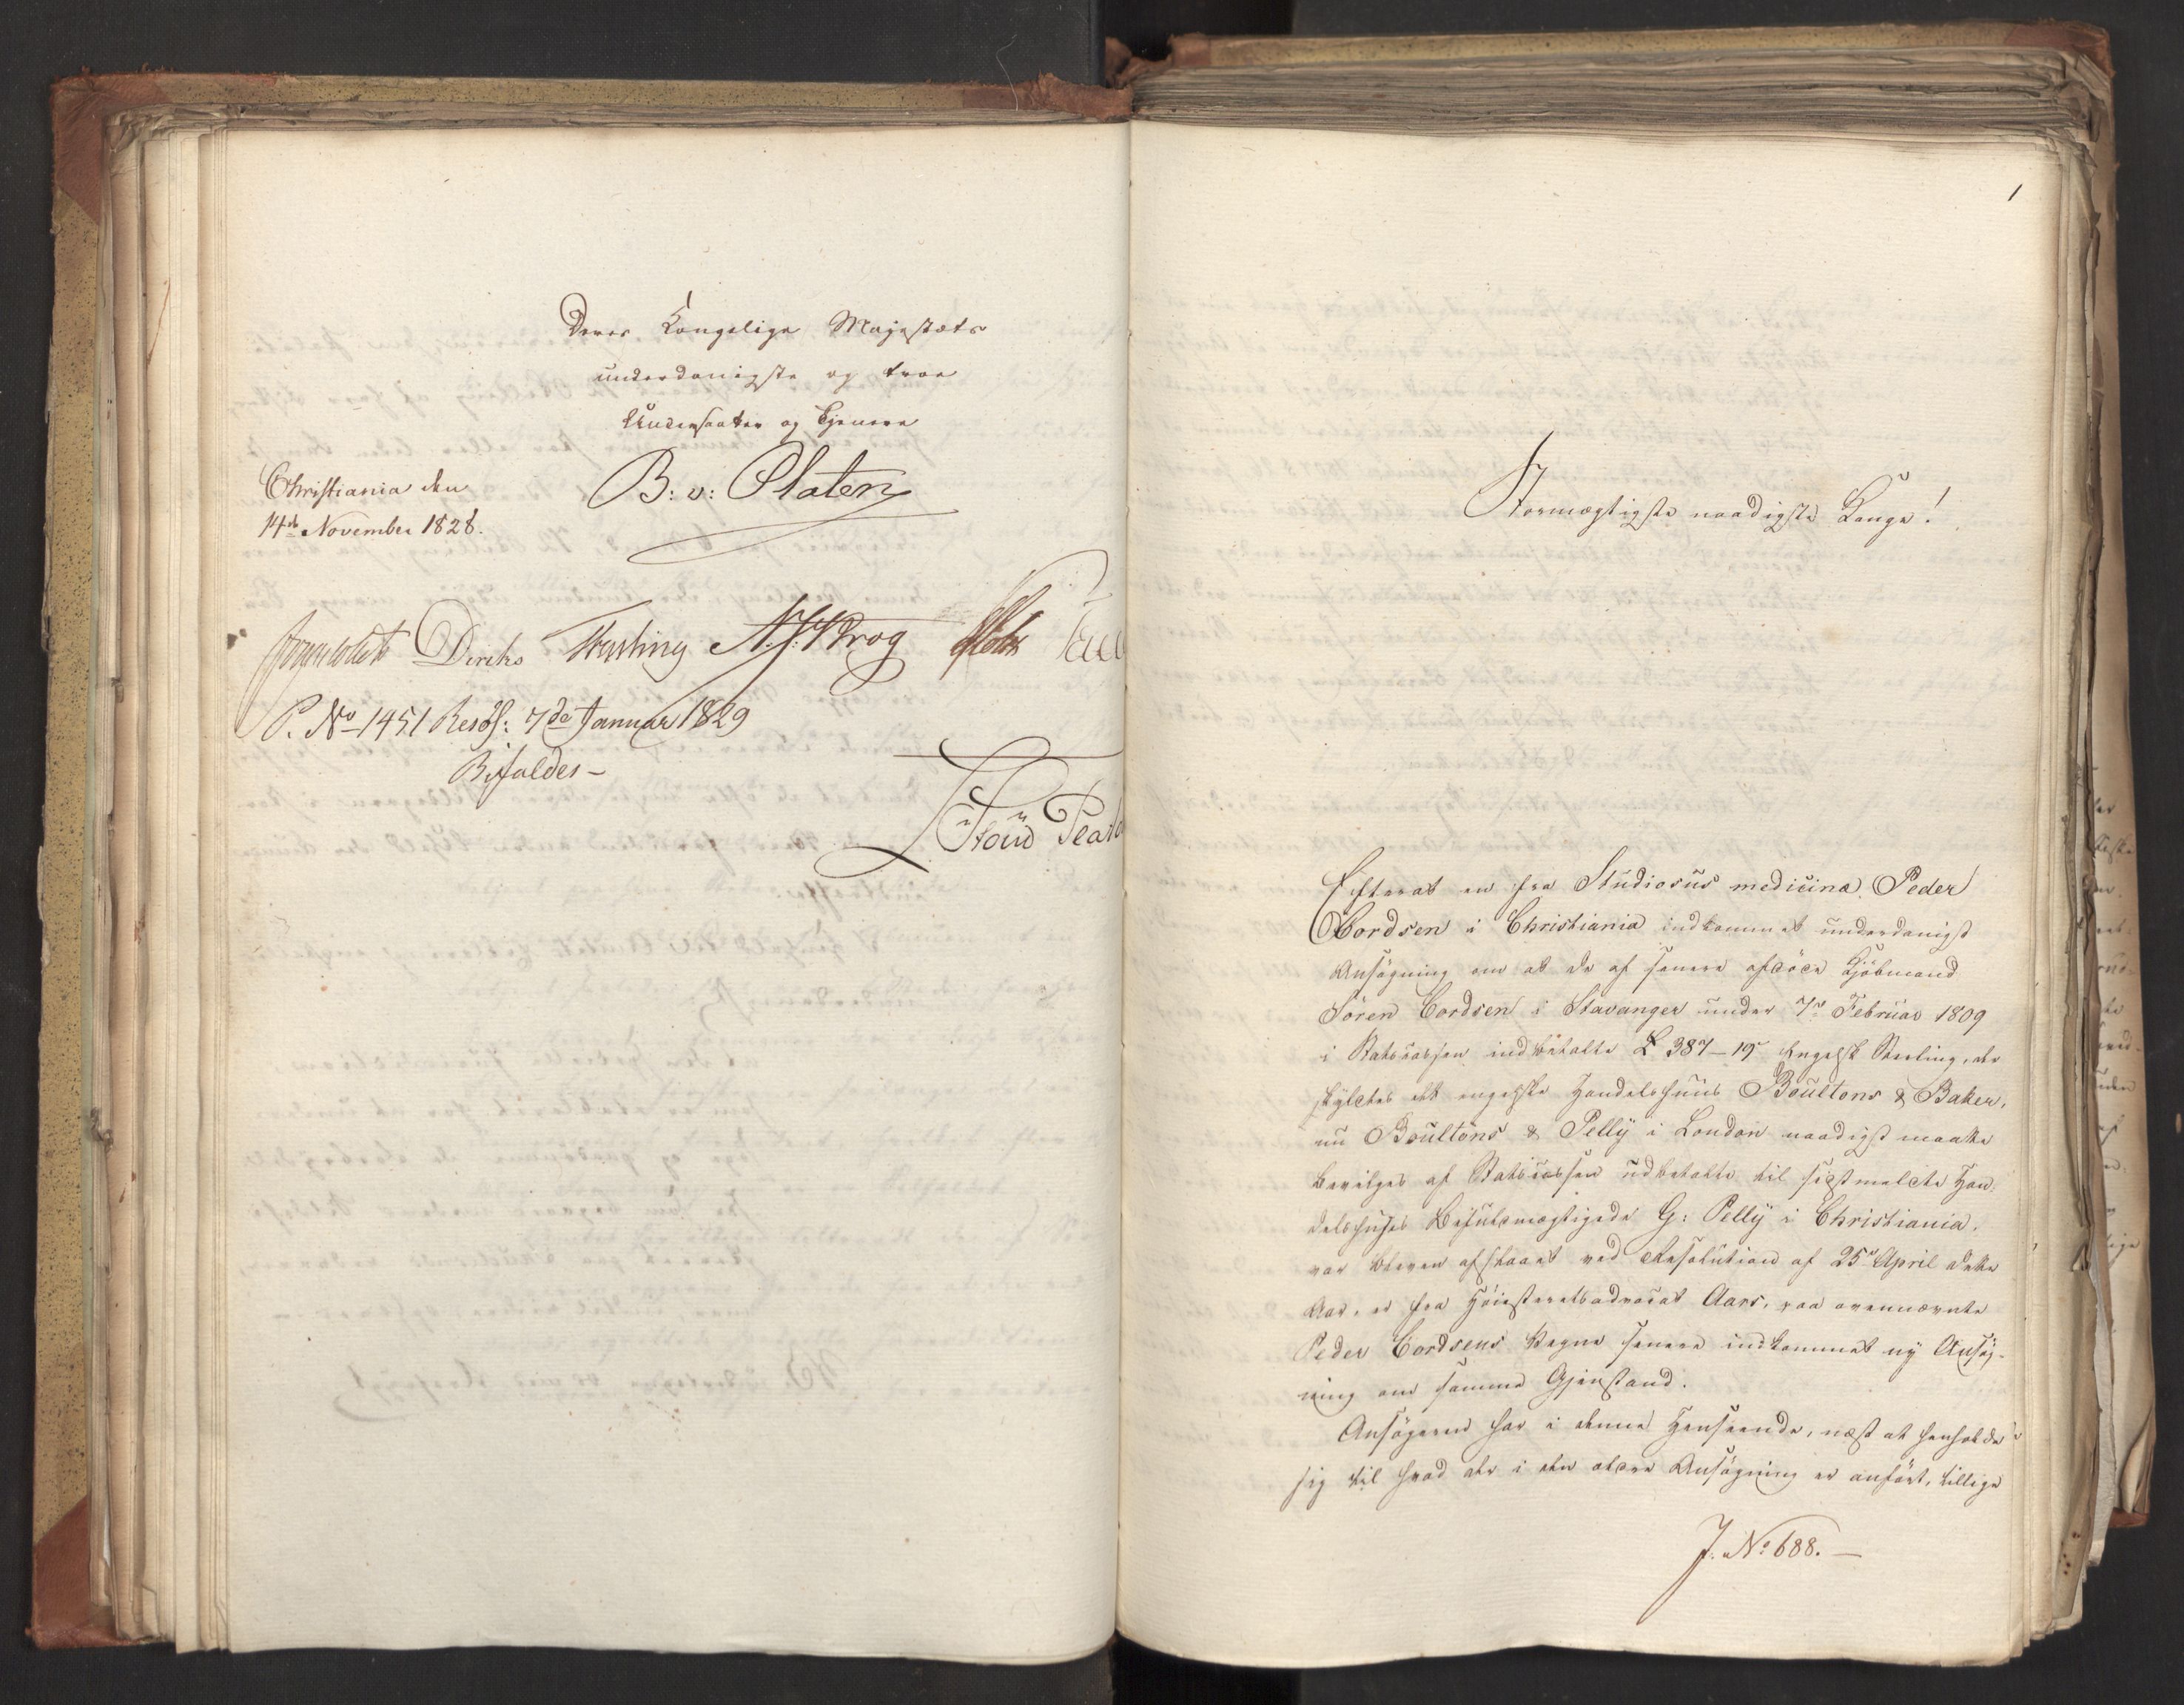 Deres Kongelige Majestæts
underdanigste og troe
Undersaatter og Tjenere
Christiania den
14de November 1828.
B: v: Platen
Diriks Fasting N. J. Krog
P. No 1451 Resol: 7de Januar 1829
Bifaldes –
1
Stormægtigste naadigste Konge!
Efterat en fra Studiosus medicinæ Peder
Cordsen i Christiania indkommet underdanigst
Ansøgning om at de af senere afdøde Kjöbmand
Sören Cordsen i Stavanger under 7de Februar 1809
i Statscassen indbetalte £ 387–19s Engelsk Sterling, der
skyldtes det engelske Handelshuus Boultons & Baker,
nu Boultons & Pelly i London naadigst maatte
bevilges af Statscassen udbetalte til sidstmeldte Han-
delshuses Befuldmægtigede G: Pelly i Christiania,
var bleven afslaaet ved Resolution af 25de April dette
Aar, er fra Höiesteretsadvocat Aars, paa ovennævnte
Peder Cordsens Vegne senere indkommet ny Ansøg-
ning om samme Gjenstand.
Ansøgeren har i denne Henseende, næst at henholde
sig til hvad der i den ældre Ansøgning er anført, tillige
J. No 688. –